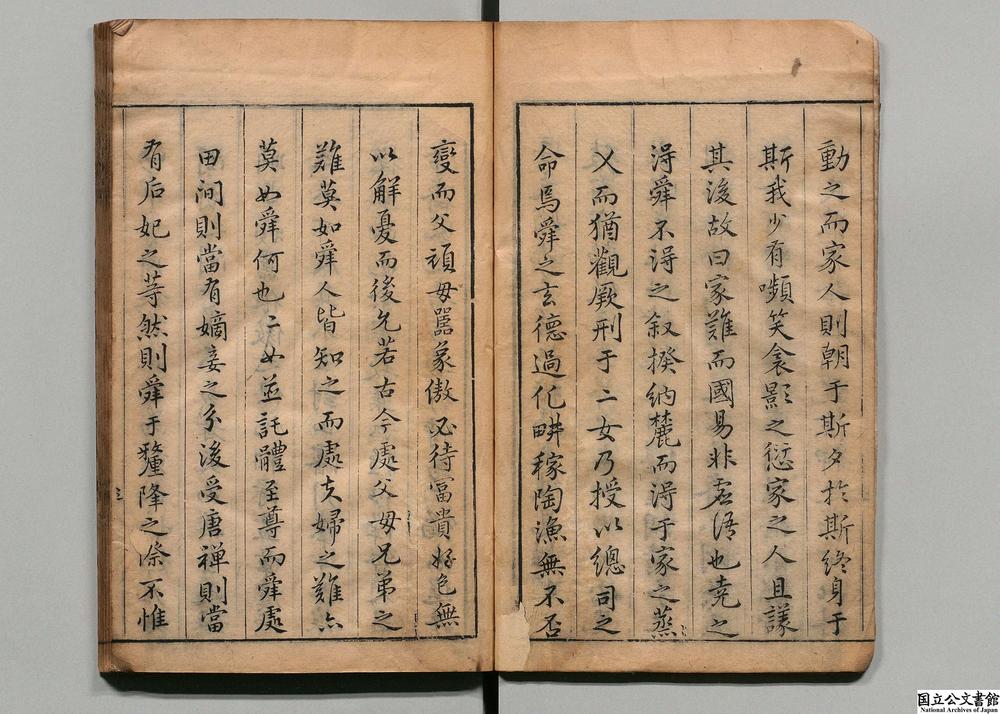 動之而家人則朝于斯夕於斯終身于
斯我少有嚬笑衾影之愆家之人且議
其後故曰家難而國易非虛語也堯之
得舜不得之叙揆納麓而得于家之蒸
乂而猶觀厥刑于二女乃授以總司之
命焉舜之玄德過化畊稼陶漁無不否
變而父頑母嚚象傲必待富貴好色無
以解憂而後允若古今處父母兄弟之
難莫如舜人皆知之而處夫婦之難亦
莫如舜何也二女並託體至尊而舜處
田間則當有嫡妾之分後受唐禪則當
有后妃之等然則舜于釐降之際不惟
国立公文書館
National Archives of Japan